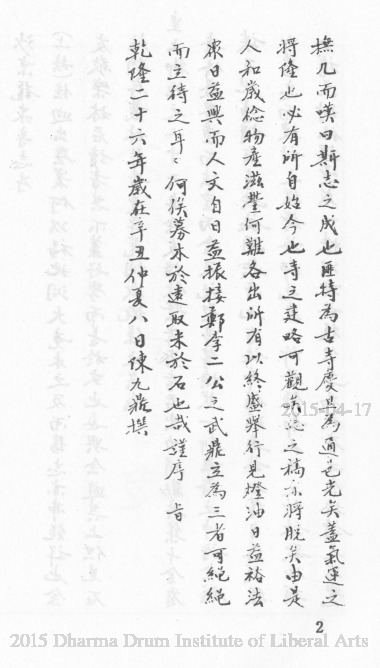 撫几而嘆曰斯志之成也匪特為古寺慶且為通邑光矣蓋氣運之
將隆也必有所自始今也寺之建略可觀矣志之稿亦將脫矣由是
人和歲稔物產滋豐何難各出所有以終盛舉行見燈油日益裕法
眾日益興而人文自日益振接鄭李二公之武鼎立為三者可繩繩
而立待之耳〻何俟募木於遠取來於石也哉謹序 旹
乾隆二十六年歲在辛丑仲夏八日陳九鼎撰
2
2015-04-17
2015 Dharma Drum Institute of Liberal Arts